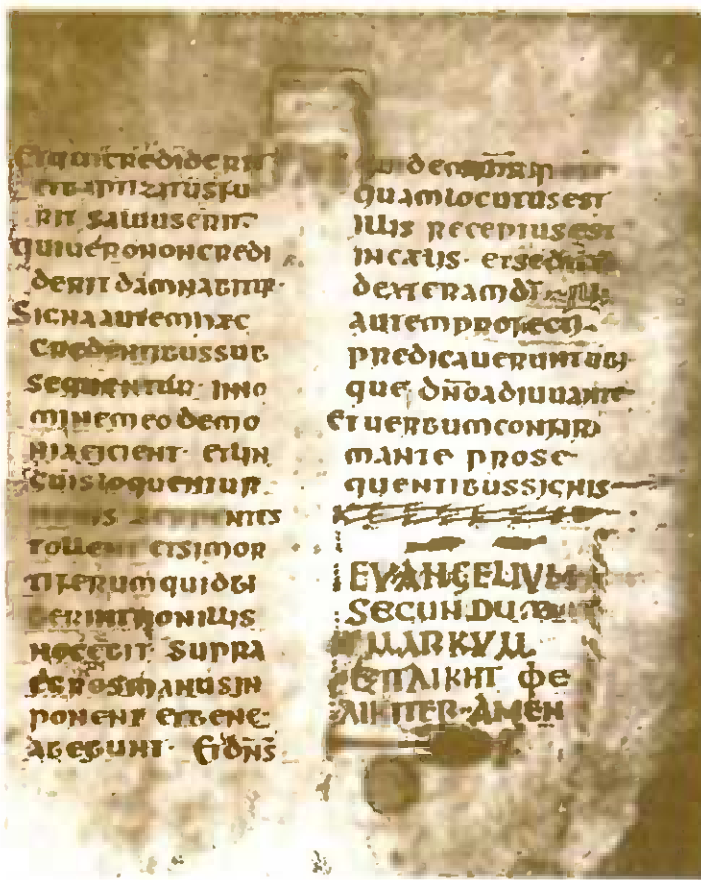 Et qui crediderit
et baptizatus fu
rit saluus erit
qui uero non credi
derit damnabitur·
Signa autem hæc
credentibus sub
sequentur· in no
mine meo demo
nia eicient· et lin
guis loquentur
tollent et si mor
tiferum quid bi
berint non illis
nocebit· supra
egros manus in
ponent et bene
abebunt· Et dn̄s
quidem
quam locutus est
illis receptus est
in cælis· et sedit
dexteram dī· illi
autem profecti
predicauerunt ubi
que dn̄o adiuuante
et uerbum confir
mante prose
quentibus signis
EVANGELIVM
SECUNDUM
MARKVM
ΕΠΛΙΚΗΤ ΦΕ
ΛΙΚΙΤΕΡ·ΑΜΕΝ